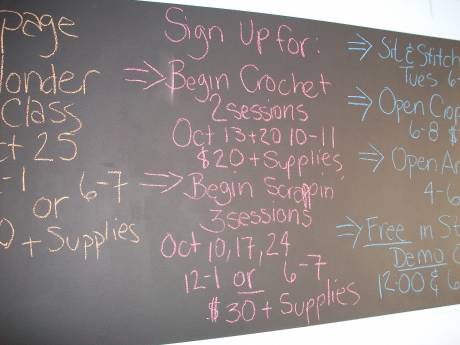 page
onder
Class
ct 25
-1 or 6-7
0 + Supplies
Sign Up for:
⇒ Begin Crochet
2 sessions
Oct 13+20 10-11
$20 + Supplies
⇒ Begin Scrappin'
3 sessions
Oct 10,17,24
12-1 or 6-7
$30 + Supplies
⇒ Sit & Stitch
Tues 6-
⇒ Open Crop
6-8 $
⇒ Open Ar
4-6
⇒ Free in St
Demo
12:00 & 6